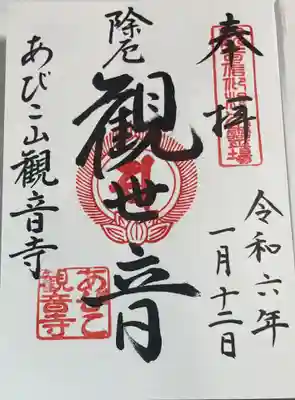 奉拝
令和六年
一月十二日
除厄
観世音
あびこ山觀音寺
あびこ
観音寺